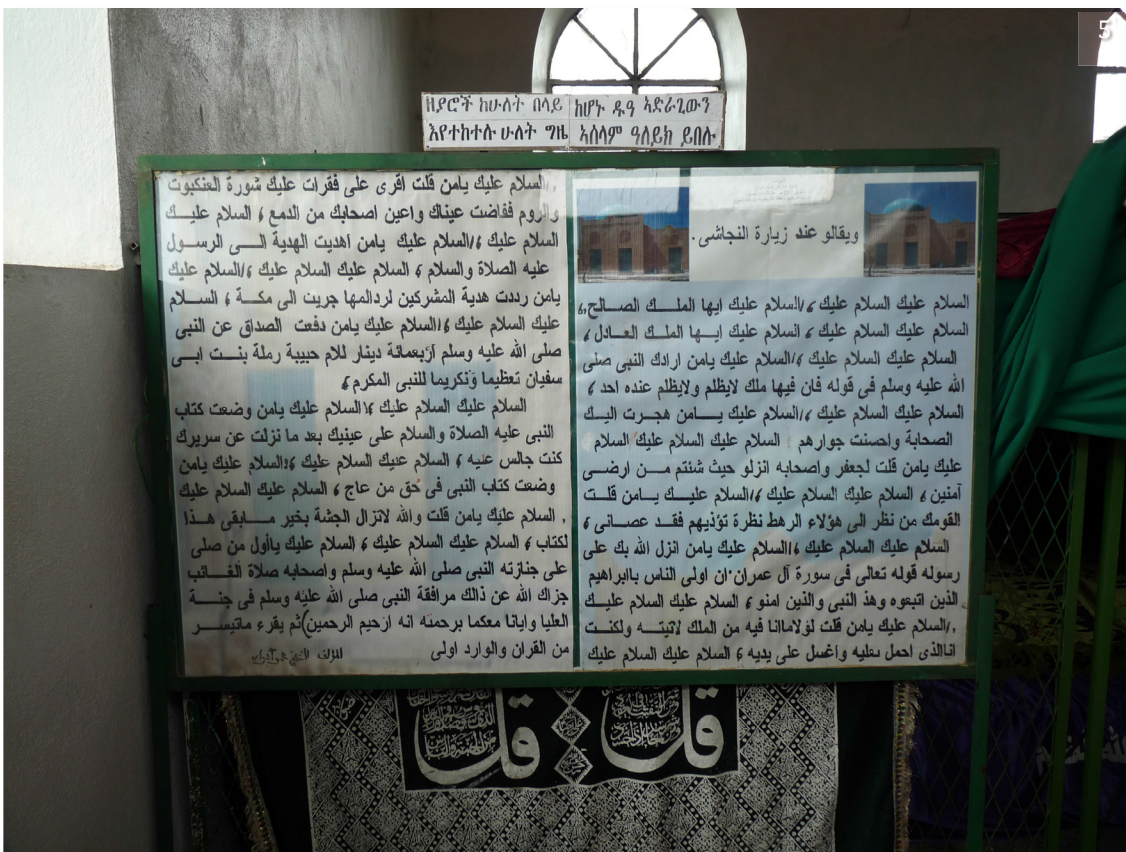 5
ዘያሮች ከሁለት በላይ ከሆኑ ዱዓ ኣድራጊውን
እየተከተሉ ሁለት ግዜ ኣሰላም ዓለይክ ይበሉ
ويقالو عند زيارة النجاشى.
السلام عليك السلام عليك ؟/السلام عليك ايها الملك الصالح,؟
السلام عليك السلام عليك ؟ السلام عليك ايها الملك العادل ؟
السلام عليك السلام عليك ؟/السلام عليك يامن ارادك النبى صلى
الله عليه وسلم فى قوله فان فيها ملك لايظلم ولايظلم عنده احد ؟
السلام عليك السلام عليك ؟/السلام عليك يامن هجرت اليك
الصحابة واحسنت جوارهم السلام عليك السلام عليك السلام
عليك يامن قلت لجعفر واصحابه انزلو حيث شئتم من ارضى
آمنين ؟ السلام عليك السلام عليك ؟/السلام عليك يامن قلت
القومك من نظر الى هؤلاء الرهط نظرة تؤذيهم فقد عصانى ؟
السلام عليك السلام عليك ؟/السلام عليك يامن انزل الله بك على
رسوله قوله تعالى فى سورة آل عمران ان اولى الناس باابراهيم
الذين اتبعوه وهذ النبى والذين امنو ؟ السلام عليك السلام عليك
./السلام عليك يامن قلت لؤلاماانا فيه من الملك لاتيته ولكنت
اناالذى احمل نعليه واغسل على يديه ؟ السلام عليك السلام عليك
./السلام عليك يامن قلت اقرى على فقرات عليك شورة العنكبوت
والروم ففاضت عيناك واعين اصحابك من الدمع ؟ السلام عليك
السلام عليك ؟/السلام عليك يامن اهديت الهدية الى الرسول
عليه الصلاة والسلام ؟ السلام عليك السلام عليك ؟/السلام عليك
يامن رددت هدية المشركين لردالمها جريت الى مكة ؟ السلام
عليك السلام عليك ؟/السلام عليك يامن دفعت الصداق عن النبى
صلى الله عليه وسلم آربعمائة دينار للام حبيبة رملة بنت ابى
سفيان تعظيما وتكريما للنبى المكرم ؟
السلام عليك السلام عليك ؟/السلام عليك يامن وضعت كتاب
النبى عليه الصلاة والسلام على عينيك بعد ما نزلت عن سريرك
كنت جالس عليه ؟ السلام عليك السلام عليك ؟/السلام عليك يامن
وضعت كتاب النبى فى حق من عاج ؟ السلام عليك السلام عليك
. السلام عليك يامن قلت والله لاتزال الجشة بخير مابقى هذا
لكتاب ؟ السلام عليك السلام عليك ؟ السلام عليك ياأول من صلى
على جنازته النبى صلى الله عليه وسلم واصحابه صلاة الغائب
جزاك الله عن ذالك مرافقة النبى صلى الله عليه وسلم فى جنة
العليا وايانا معكما برحمته انه ارحيم الرحمين)ثم يقرء ماتيسر
من القران والوارد اولى
قل
قل